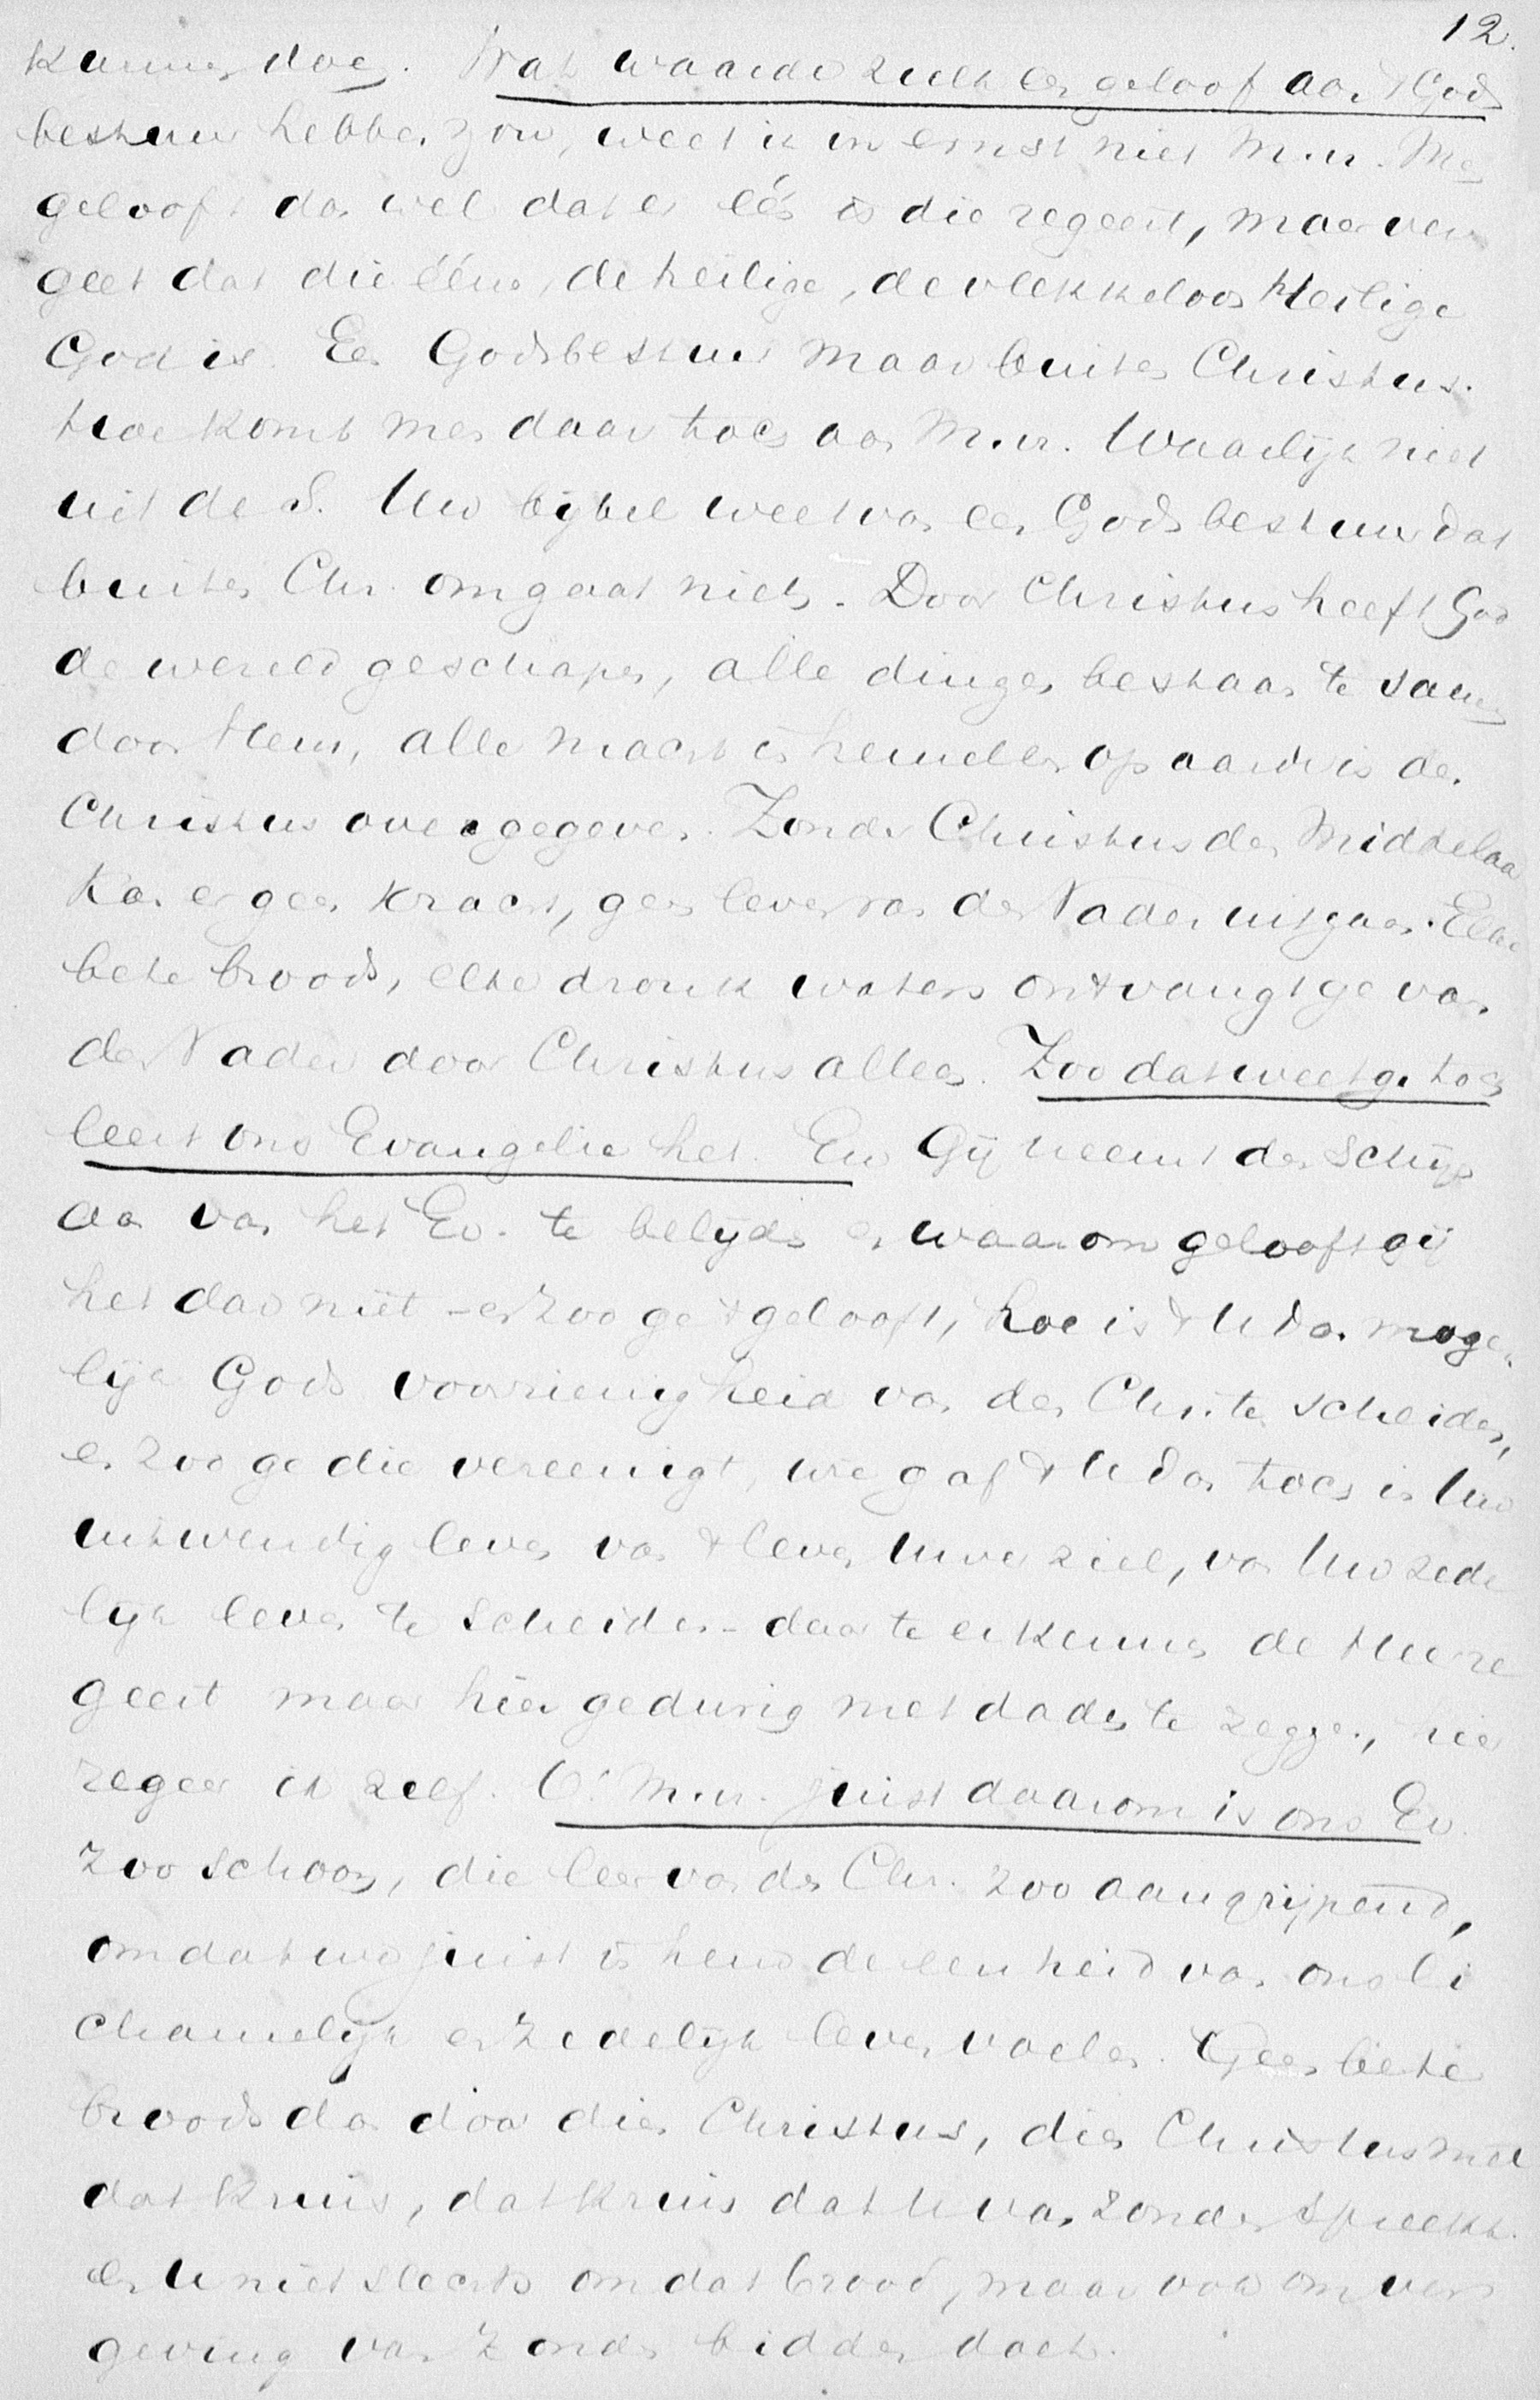 12.
kunnen doen. Wat waarde zulk een geloof aan 't Gods
bestuur hebben zou, weet ik in ernst niet M.v. Men
gelooft dan wel dat er één is die regeert, maar ver
geet dat die ééne, de heilige, de vlekkeloos Heilige
God is. Een Godsbestuur maar buiten Christus.
Hoe komt men daar toch aan M.v. Waarlijk niet
uit de S. Uw bijbel weet van een Godsbestuur dat
buiten Chr. omgaat niets. Door Christus heeft God
de wereld geschapen, alle dingen bestaan te samen
door Hem, alle macht in hemel en op aarde is den
Christus overgegeven. Zonder Christus den Middelaar
kan er geen kracht, geen leven van den Vader uitgaan. Elke
bete broods, elke dronk waters ontvangt ge van
den Vader door Christus alleen. Zoo dat weet ge toch
leert ons Evangelie het. En Gij neemt den schijn
aan van het Ev. te belijden en waarom gelooft gij
het dan niet – en zoo ge 't gelooft, hoe is 't U dan moge
lijk Gods voorzienigheid van den Chr. te scheiden,
en zoo ge die vereenigt, wie gaf 't U dan toch in Uw
uitwendig leven van 't leven Uwer ziel, van Uw zede
lijk leven te scheiden – daar te erkennen de Heer re
geert maar hier gedurig met daden te zeggen, hier
regeer ik zelf. O! M.v. juist daarom is ons Ev.
zoo schoon, die leer van den Chr. zoo aangrijpend,
omdat we juist in hem de eenheid van ons li
chamelijk en zedelijk leven voelen. Geen bete
broods dan door dien Christus, dien Christus met
dat kruis, dat kruis dat U van zonden spreekt
en U niet slechts om dat brood, maar ook om ver
geving van zonden bidden doet.